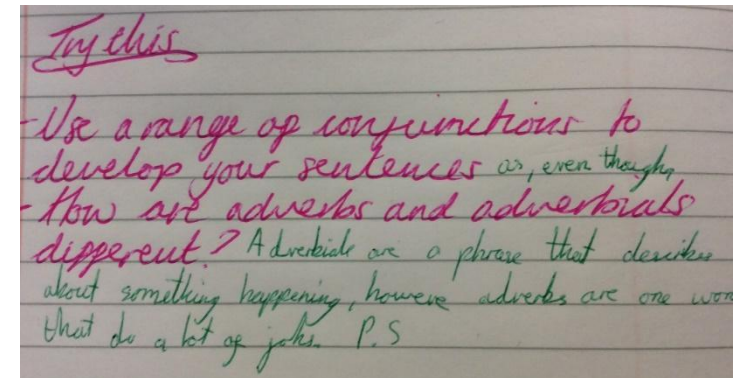 Try this
- Use a range of conjunctions to
develop your sentences as, even though,
- How are adverbs and adverbials
different? Adverbials are a phrase that describes
about something happening, however adverbs are one word
that do a lot of jobs. P.S